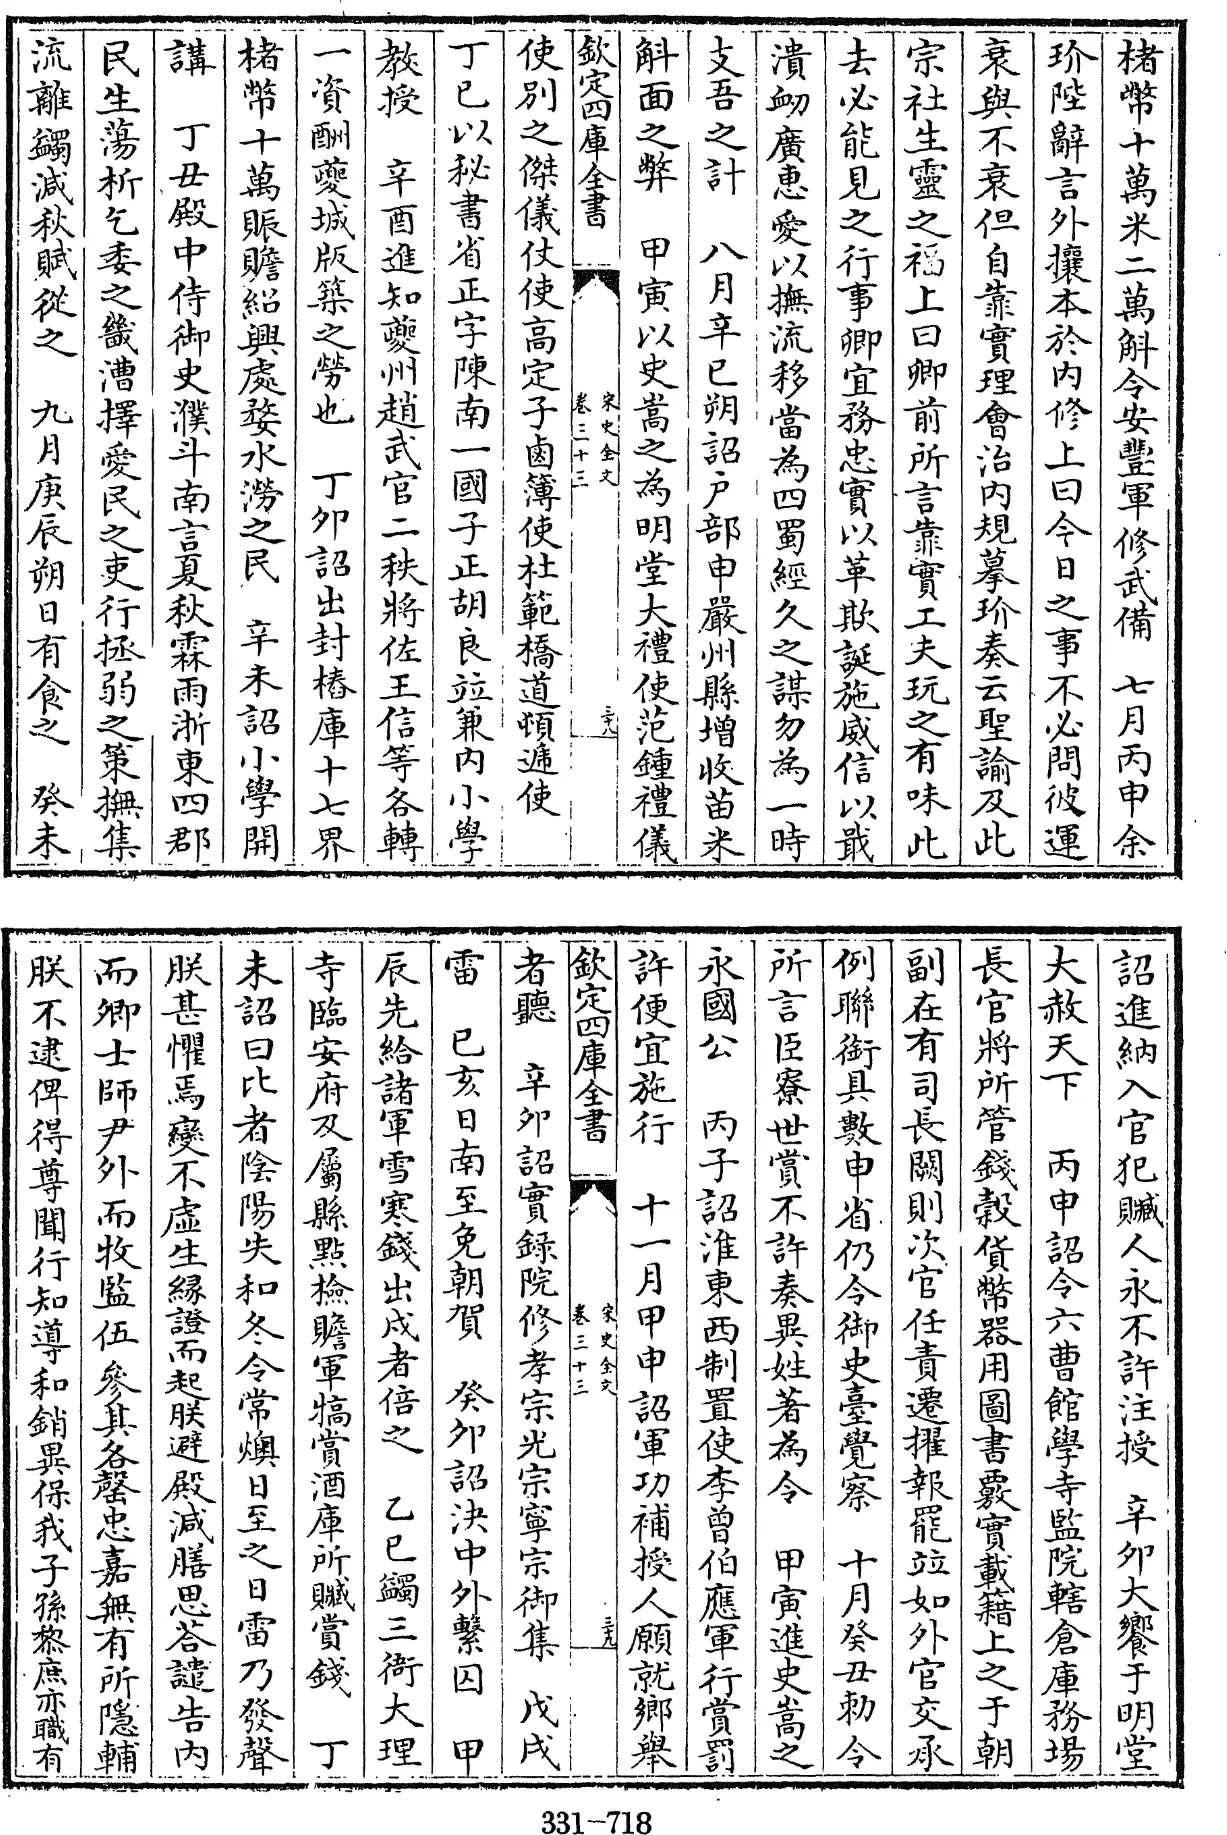 楮幣十萬米二萬斛令安豐軍修武備　七月丙申余
玠陛辭言外攘本於内修上曰今日之事不必問彼運
衰與不衰但自靠實理會治内規摹玠奏云聖諭及此
宗社生靈之福上曰卿前所言靠實工夫玩之有味此
去必能見之行事卿宜務忠實以革欺誕施威信以戢
潰衂廣惠愛以撫流移當為四蜀經久之謀勿為一時
支吾之計　八月辛巳朔詔戸部申嚴州縣增收苗米
斛面之弊　甲寅以史嵩之為明堂大禮使范鍾禮儀
欽定四庫全書
宋史全文
卷三十三
三十九
使别之傑儀仗使高定子鹵簿使杜範橋道頓遞使
丁巳以秘書省正字陳南一國子正胡良竝兼内小學
教授　辛酉進知夔州趙武官二秩將佐王信等各轉
一資酬夔城版築之勞也　丁卯詔出封樁庫十七界
楮幣十萬賑贍紹興處婺水澇之民　辛未詔小學開
講　丁丑殿中侍御史濮斗南言夏秋霖雨浙東四郡
民生蕩析乞委之畿漕擇愛民之吏行拯弱之策撫集
流離蠲減秋賦從之　九月庚辰朔日有食之　癸未
詔進納入官犯贓人永不許注授　辛卯大饗于明堂
大赦天下　丙申詔令六曹館學寺監院轄倉庫務場
長官將所管錢穀貨幣器用圖書覈實載籍上之于朝
副在有司長闕則次官任責遷擢報罷竝如外官交承
例聯銜具數申省仍令御史臺覺察　十月癸丑勅令
所言臣寮世賞不許奏異姓著為令　甲寅進史嵩之
永國公　丙子詔淮東西制置使李曾伯應軍行賞罰
許便宜施行　十一月甲申詔軍功補授人願就鄉舉
欽定四庫全書
宋史全文
卷三十三
三十九
者聽　辛卯詔實録院修孝宗光宗寧宗御集　戊戌
雷　已亥日南至免朝賀　癸卯詔決中外繫囚　甲
辰先給諸軍雪寒錢出戍者倍之　乙巳蠲三衙大理
寺臨安府及屬縣點檢贍軍犒賞酒庫所贓賞錢　丁
未詔曰比者陰陽失和冬令常燠日至之日雷乃發聲
朕甚懼焉變不虚生緣證而起朕避殿減膳思答譴告内
而卿士師尹外而牧監伍參其各罄忠嘉無有所隱輔
朕不逮俾得尊聞行知導和銷異保我子孫黎庶亦職有
331-718